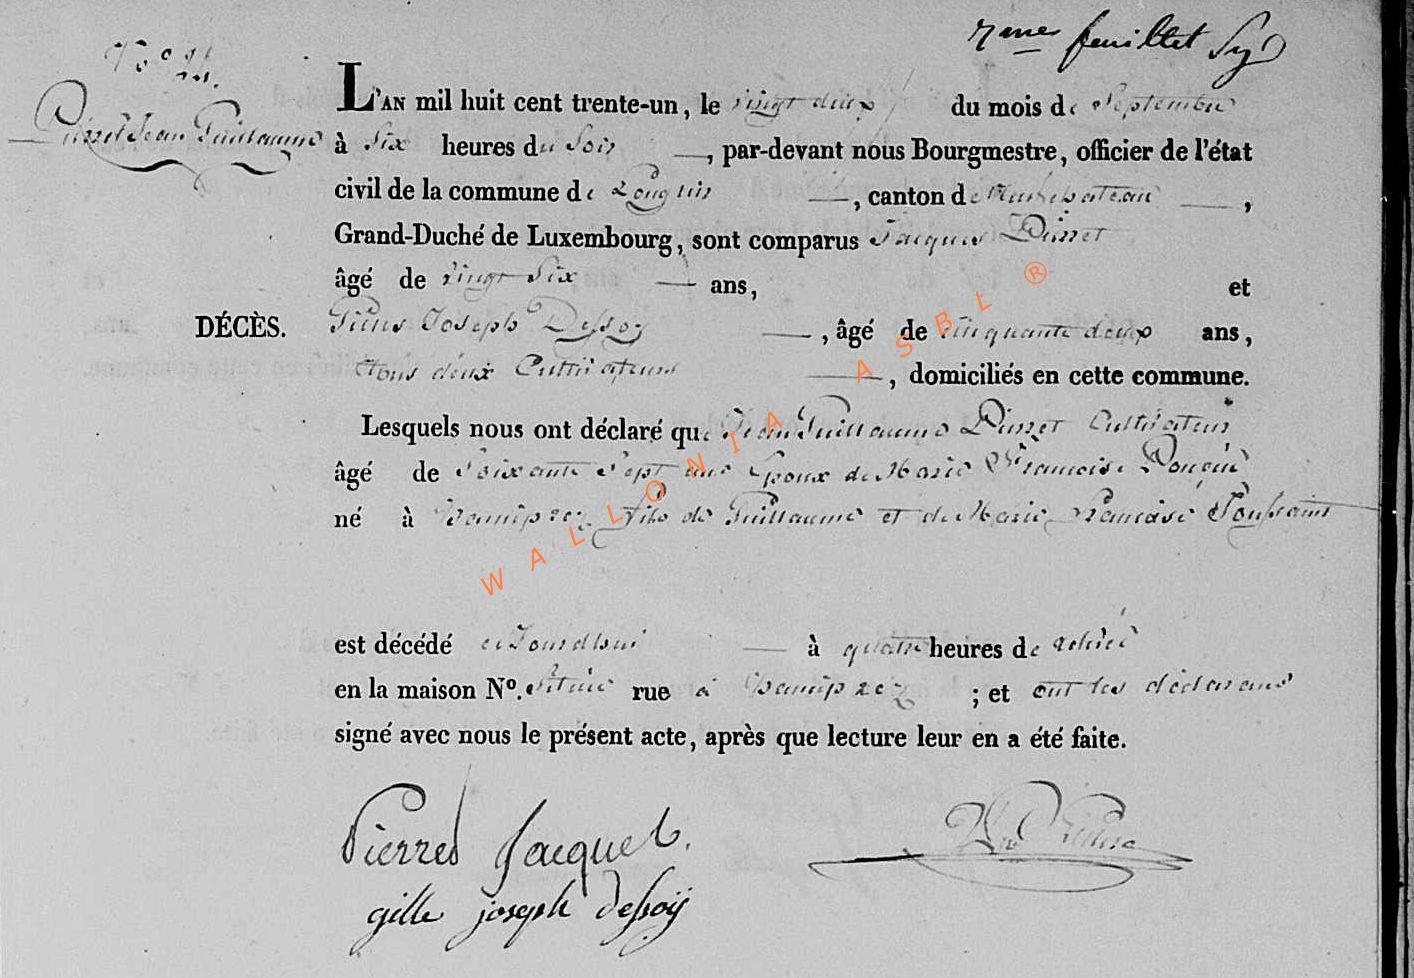 7mes feuillet
N°
Pierret Jean Guillaume
L'AN mil huit cent trente-un, le vingt deux du mois de Septembre
à Six heures du Soir, par-devant nous Bourgmestre, officier de l'état
civil de la commune de Longlier, canton de Neufchateau,
Grand-Duché de Luxembourg, sont comparus Jacques Pierret
âgé de vingt Six ans, et
DÉCÈS.
Joseph Dessoy, âgé de cinquante deux ans,
tous deux Cultivateurs, domiciliés en cette commune.
Lesquels nous ont déclaré que Jean Guillaume Pierret Cultivateur
âgé de Soixante Sept ans Epoux de Marie Françoise
né à fils de Guillaume et de Marie Françoise Toussaint
est décédé ce Jourdhui à quatre heures de relevé
en la maison N°. Située rue à ; et ont les déclarans
signé avec nous le présent acte, après que lecture leur en a été faite.
Pierred Jacquet.
gille joseph dessoÿ
WALLONIA ASBL ®